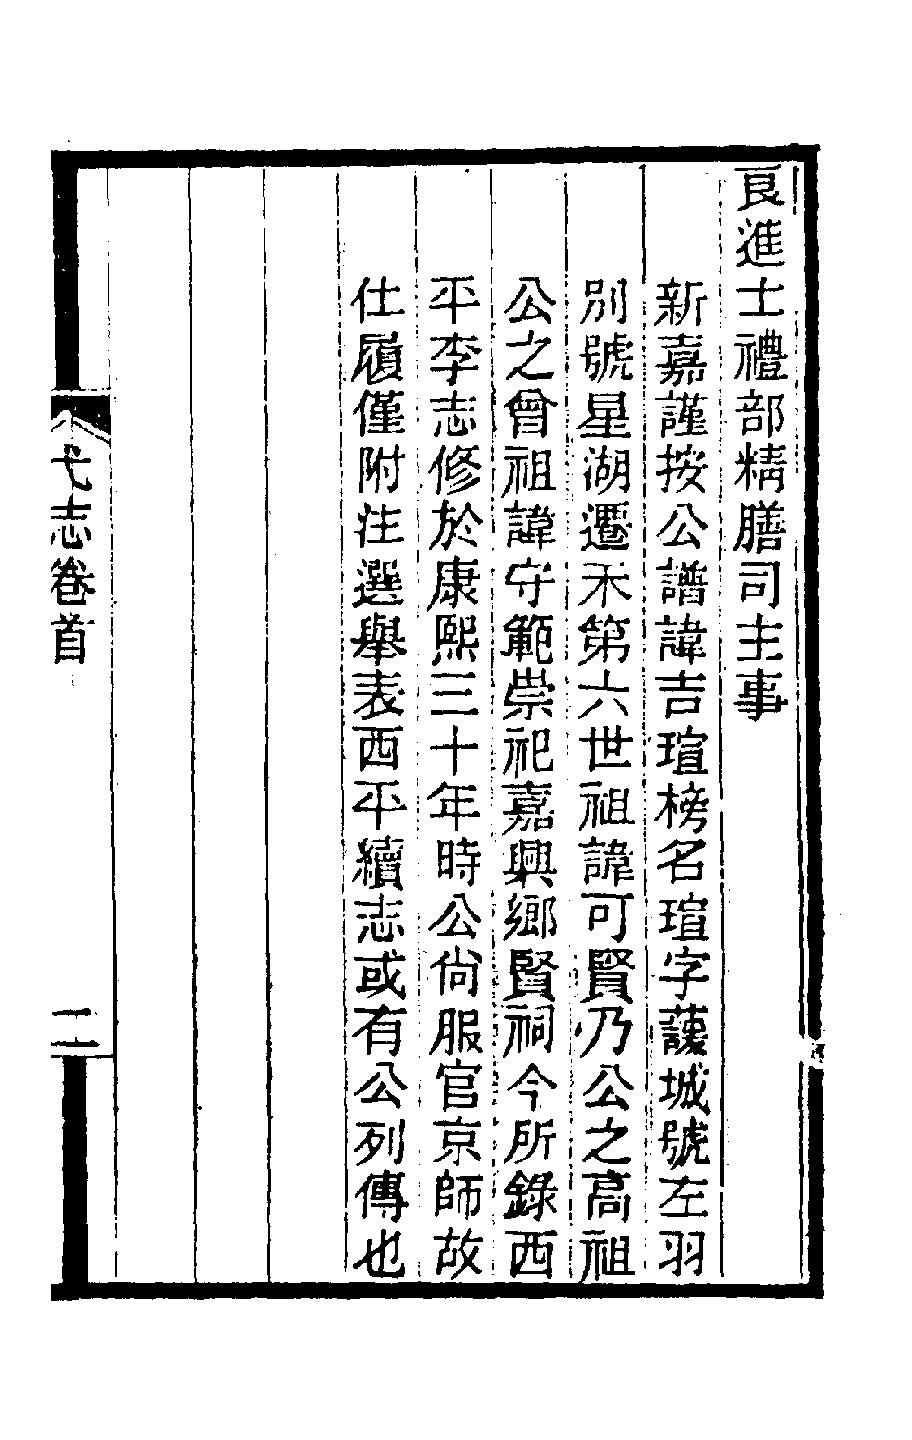 良進士禮部精膳司主事
新嘉謹按公譜諱吉瑄榜名瑄字護城號左羽
別號星湖遷禾第六世祖諱可賢乃公之高祖
公之曾祖諱守範崇祀嘉興鄉賢祠今所錄西
平李志修於康熙三十年時公尙服官京師故
仕履僅附注選舉表西平續志或有公列傳也
弋志卷首
二